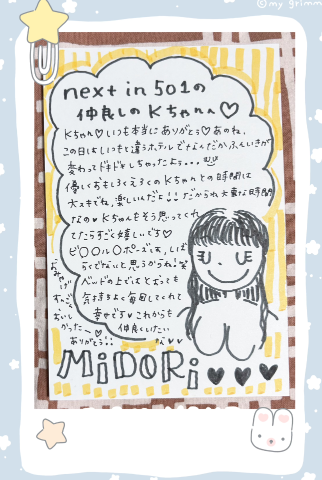 ©my grimm
next in 501の
仲良しの Kちゃんへ♡
Kちゃん♡いつも本当にありがとう♡あのね、
この日はいつもと違うホテルでなんだかふんいきが
変わってドキドキしちゃったよぅ...
優しくておもしろくえろくのKちゃんとの時間は
大スキでね。楽しいんだよ!!だから大事な時間
なの♥Kちゃんもそう思ってくれ
てたらすごく嬉しいです♡
ピ〇〇ル〇ポーズは、しば
らくでないと思うからね!笑
ベッドの上ではとっても
気持ちよく毎回してくれて
幸せです♡これからも
仲良くしたい
な♥♥
おみやげ
すんごく
おいし
かったー
ありがとう!!
MiDORi♥♥♥